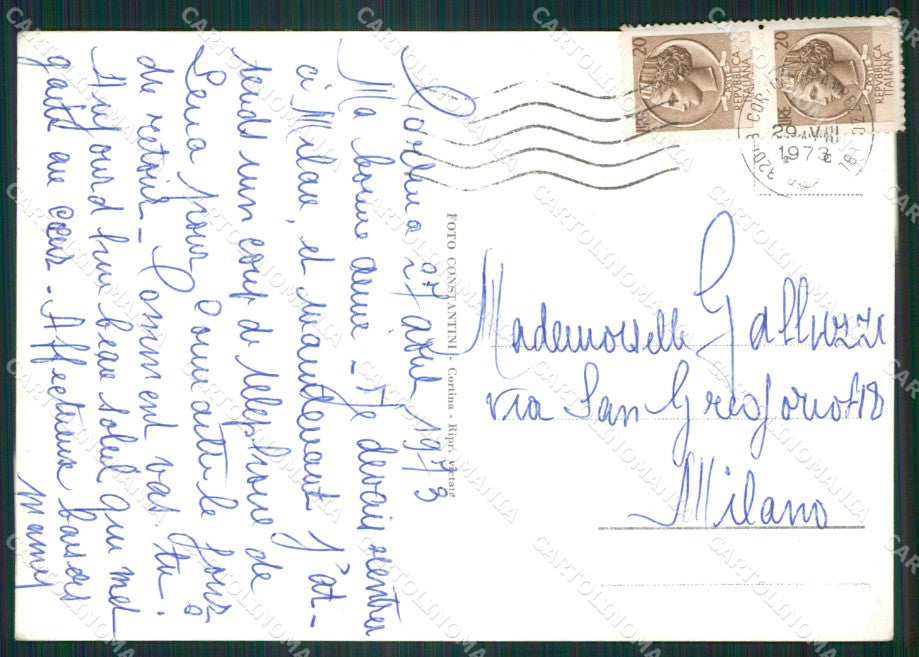 Cortina 27 août 1973
Ma bonne amie - Je devais rentrer
à Milan, et maintenant j'at-
tends un coup de telephone de
Lena pour connaitre le jour
du retour - Comment vas-tu ?
Aujourd'hui beau soleil qui met
gaité au coeur - Affectueux baisers
FOTO CONSTANTINI - Cortina - Ripr. vietata
20
REPVBBLICA
ITALIANA
20
REPVBBLICA
ITALIANA
29 VIII
1973
Mademoiselle Galluzzi
via San Gregorio 48
Milano
CARTOLINOMANIA